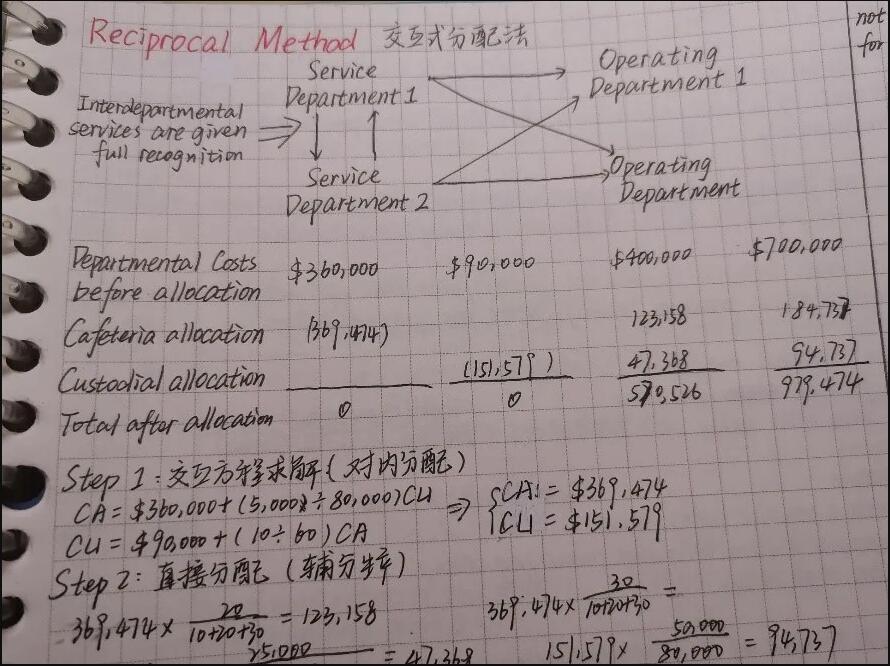 Reciprocal Method 交互式分配法
not
for
Service
Department 1
Operating
Department 1
Interdepartmental
services are given
full recognition
Service
Department 2
Operating
Department
Departmental Costs
before allocation
$360,000 $90,000 $400,000 $700,000
Cafeteria allocation (369,474) 123,158 184,737
Custodial allocation (151,579) 47,368 94,737
Total after allocation 0 0 570,526 979,474
Step 1: 交互方程求解(对内分配)
CA = $360,000 + (5,000 ÷ 80,000) CU ⇒ { CA = $369,474
CU = $90,000 + (10 ÷ 60) CA CU = $151,579
Step 2: 直接分配 (辅分生产)
369,474 × 20/10+20+30 = 123,158 369,474 × 30/10+20+30 =
25,000 = 47,368 151,579 × 50,000/80,000 = 94,737